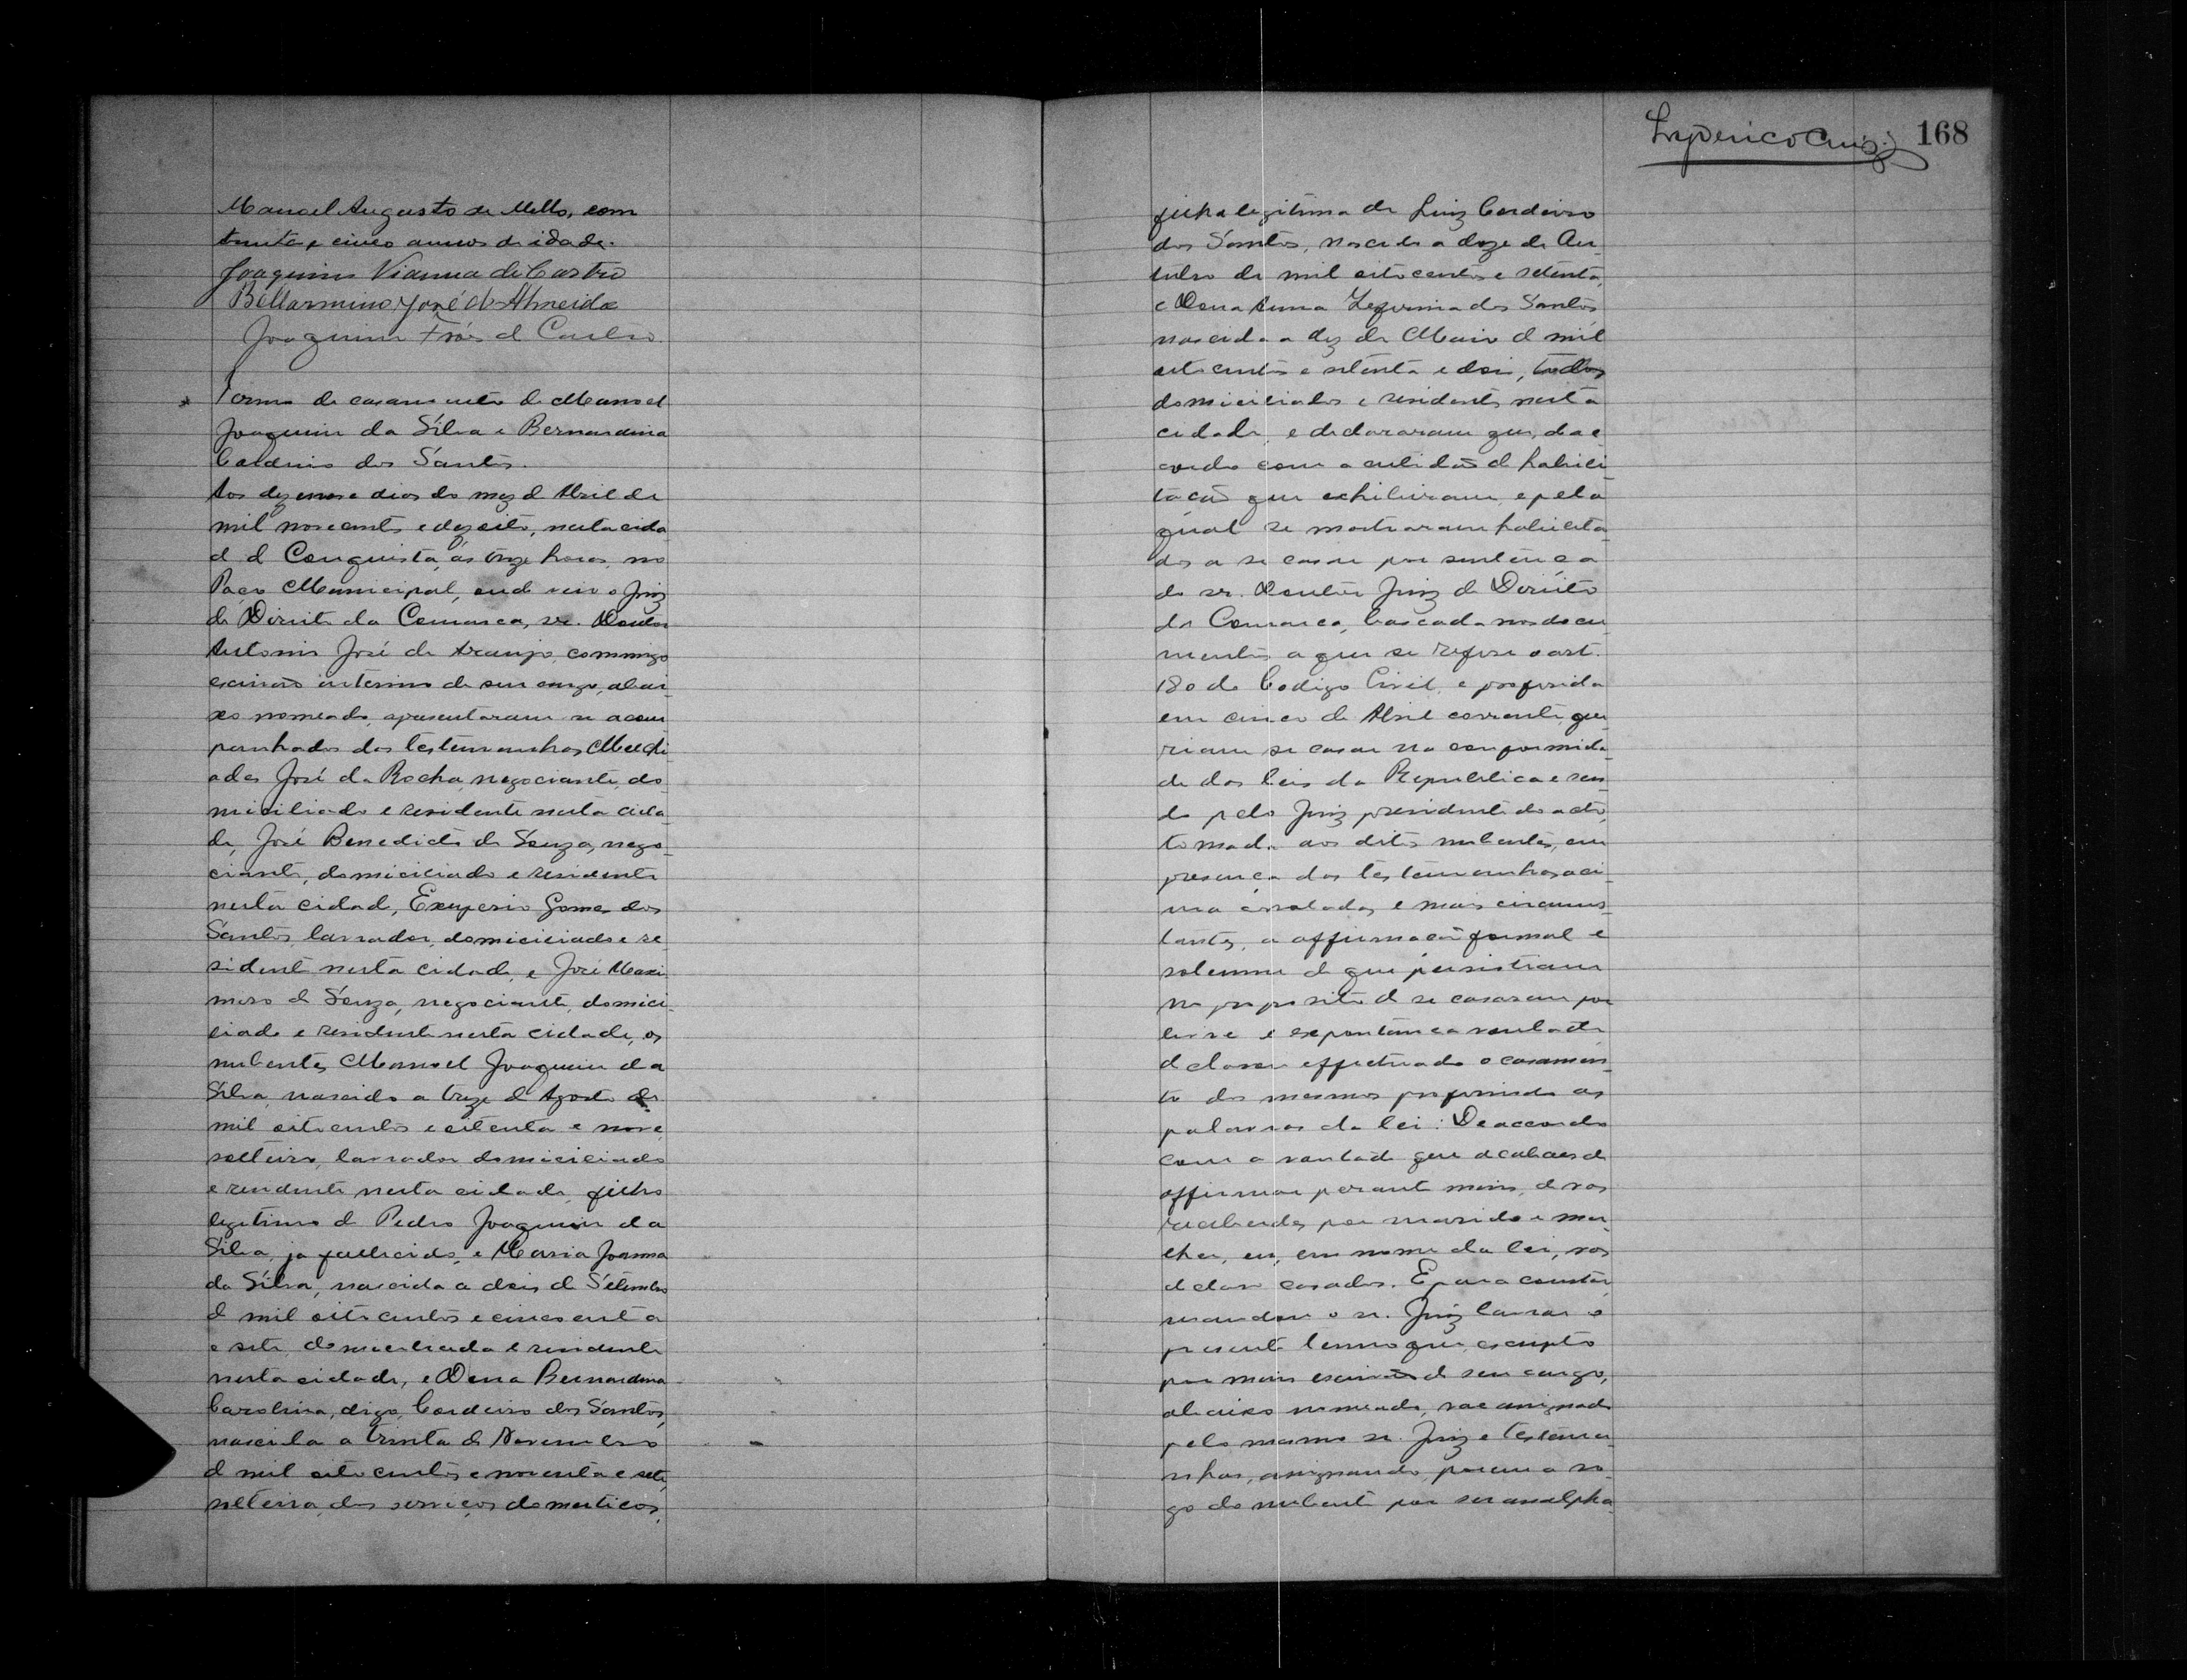 Manoel Augusto de Mello, com
trinta e cinco annos de idade.
Joaquim Vianna de Castro
Bellarmino José de Almeida
Joaquim Fróes de Castro
Termo de casamento de Manoel
Joaquim da Silva e Bernardina
Cordeiro dos Santos.
Aos dezenove dias do mez de Abril de
mil novecentos e dezoito, nesta cida
de de Conquista, ás treze horas, no
Paço Municipal, onde veio o Juiz
de Direito da Comarca, sr. Doutor
Antonio José de Araujo, commigo
escrivão interino de seu cargo, abai-
xo nomeado, apresentaram se acom
panhados das testemunhas
ades José da Rocha, negociante, do-
miciliado e residente nesta cida-
de, José Benedicto de Souza, nego-
ciante, domiciliado e residente
nesta cidade, Exuperio Gomes dos
Santos, lavrador, domiciliado e re
sidente nesta cidade, e José Maxi
mo de Souza, negociante, domici-
liado e residente nesta cidade, os
nubentes Manoel Joaquim da
Silva, nascido a treze de Agosto de
mil oitocentos e oitenta e nove,
solteiro, lavrador domiciliado
e residente nesta cidade, filho
legitimo de Pedro Joaquim da
Silva, ja fallecido, e Maria Joanna
da Silva, nascida a dois de Setembro
de mil oitocentos e cincoenta
e sete, domiciliada e residente
nesta cidade, e Dona Bernardina
Carolina, digo, Cordeiro dos Santos,
nascida a trinta de Novembro
de mil oitocentos e noventa e sete,
solteira, dos serviços domesticos,
168
filha legitima de Luiz Cordeiro
dos Santos, nascido a doze de Ou-
tubro de mil oitocentos e setenta,
e Dona Anna Zeferina dos Santos
nascida a dez de Maio de mil
oitocentos e setenta e dois, todos
domiciliados e residentes nesta
cidade, e declararam que, de ac
cordo com a certidão de habili
tação que exhibiram, e pela
qual se mostraram habilita-
dos a se casar por sentença
do sr. Doutor Juiz de Direito
da Comarca, baseada nos docu
mentos a que se refere o art.
180 do Codigo Civil, e proferida
em cinco de Abril corrente, que
riam se casar na conformida-
de das leis da Republica e sen
do pelo Juiz presidente do acto,
tomada aos ditos nubentes, em
presença das testemunhas aci-
ma arroladas e mais circums-
tantes, a affirmação formal e
solemne de que persistiam
no proposito de se casarem por
livre e expontanea vontade
declarou effectuado o casamen
to dos mesmos proferindo as
palavras da lei: De accordo
com a vontade que acabaes de
affirmar perante mim, de vos
receberdes por marido e mu-
lher, eu, em nome da lei, vos
declaro casados. E para constar
mandou o sr. Juiz lavrar o
presente termo que, escripto
por mim escrivão de seu cargo,
abaixo nomeado, vae assignado
pelo mesmo sr. Juiz e testemu-
nhas, assignando, porem a ro-
go do nubente por ser analpha-